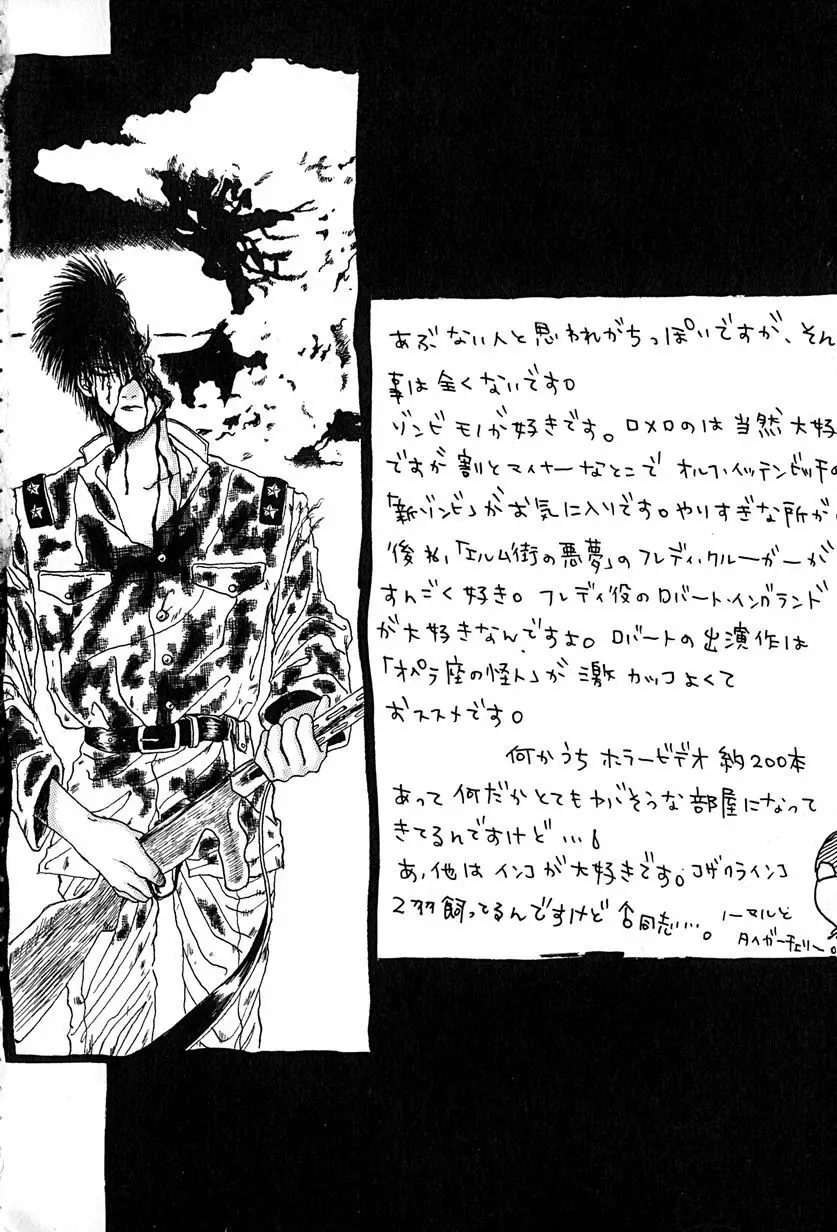 あぶない人と思われがちっぽいですが、そん
事は全くないです。
ゾンビモノが好きです。ロメロのは当然大好
ですが割とマイナーなとこでオルフ・イッテンビッチの
「新ゾンビ」がお気に入りです。やりすぎな所が
後ね、「エルム街の悪夢」のフレディ・クルーガーが
すんごく好き。フレディ役のロバート・イングランド
が大好きなんですよ。ロバートの出演作は
「オペラ座の怪人」が激カッコよくて
おススメです。
何かうちホラービデオ約200本
あって何だかとてもヤバそうな部屋になって
きてるんですけど…
あ、他はインコが大好きです。コザクラインコ
2羽飼ってるんですけど同志…。ノーマルと
タイガーチェリー。